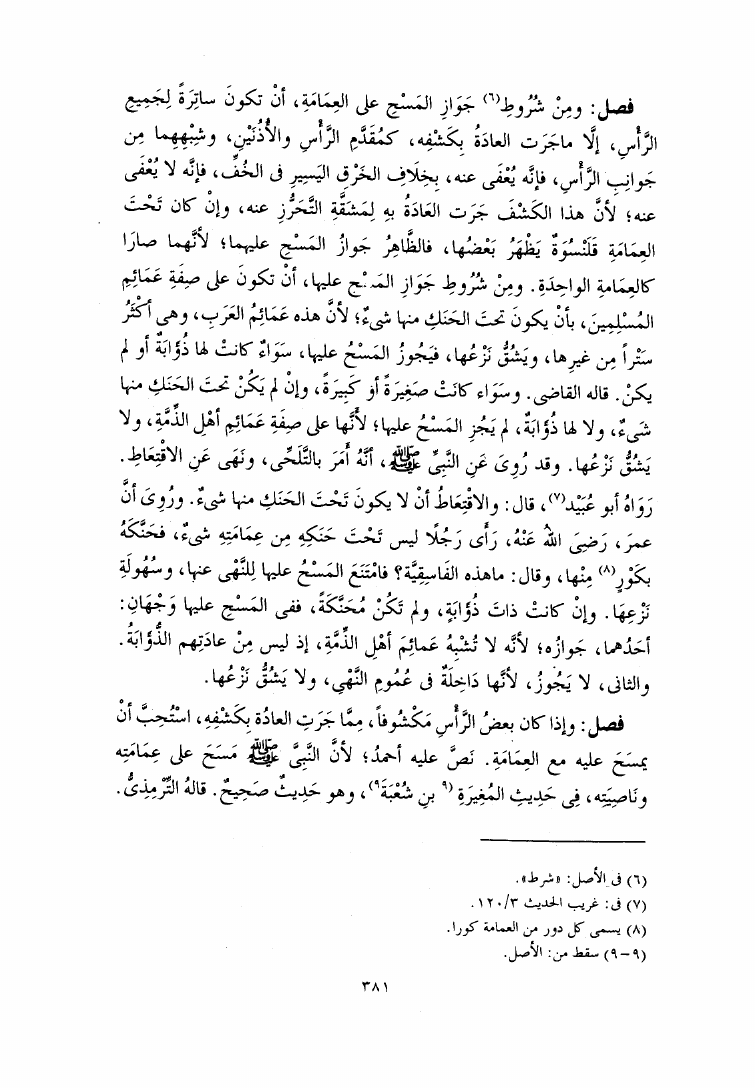 فصل : ومِنْ شُرُوطِ(٦) جَوَازِ المَسْحِ على العِمَامَةِ ، أنْ تكونَ ساتِرَةً لِجَمِيعِ
الرَّأْسِ ، إلَّا ماجَرَت العادَةُ بِكَشْفِه ، كمُقَدَّمِ الرَّأْسِ والأُذُنَيْنِ ، وشِبْهِهِما مِن
جَوانِبِ الرَّأْسِ ، فإنَّه يُعْفَى عنه ، بِخِلَافِ الخَرْقِ اليَسِيرِ فى الخُفِّ ، فإنَّه لا يُعْفَى
عنه ؛ لأنَّ هذا الكَشْفَ جَرَت العَادَةُ بهِ لِمَشَقَّةِ التَّحَرُّزِ عنه ، وإنْ كان تَحْتَ
العِمَامَةِ قَلَنْسُوَةٌ يَظْهَرُ بَعْضُها ، فالظَّاهِرُ جَوازُ المَسْحِ عليهما ؛ لأنَّهما صارَا
كالعِمَامةِ الواحِدَةِ . ومِنْ شُرُوطِ جَوَازِ المَسْحِ عليها ، أنْ تكونَ على صِفَةِ عَمَائِمِ
المُسْلِمِينَ ، بأنْ يكونَ تحتَ الحَنَكِ منها شىءٌ ؛ لأنَّ هذه عَمَائِمُ العَرَبِ ، وهى أكْثَرُ
سَتْراً مِن غيرِها ، ويَشُقُّ نَزْعُها ، فيَجُوزُ المَسْحُ عليها ، سَوَاءٌ كانتْ لها ذُؤَابَةٌ أو لم
يكنْ . قاله القاضى . وسَوَاء كانَتْ صَغِيرَةً أو كَبِيرَةً ، وإنْ لم يَكُنْ تحتَ الحَنَكِ منها
شىءٌ ، ولا لها ذُؤَابَةٌ ، لم يَجُزِ المَسْحُ عليها ؛ لأنَّها على صِفَةِ عَمَائِمِ أهْلِ الذِّمَّةِ ، ولا
يَشُقُّ نَزْعُها . وقد رُوِىَ عَنِ النَّبِىِّ ﷺ ، أنَّهُ أَمَرَ بالتَّلَحِّى ، ونَهَى عَنِ الاقْتِعَاطِ .
رَوَاهُ أبو عُبَيْد(٧) ، قال : والاقْتِعَاطُ أنْ لا يكونَ تَحْتَ الحَنَكِ منها شىءٌ . ورُوِىَ أنَّ
عمرَ ، رَضِىَ اللهُ عَنْهُ ، رَأَى رَجُلًا ليس تَحْتَ حَنَكِهِ مِن عِمَامَتِهِ شىءٌ ، فحَنَّكَهُ
بكَوْرٍ(٨) مِنْها ، وقال : ماهذه الفَاسِقِيَّة ؟ فامْتَنَعَ المَسْحُ عليها لِلنَّهْى عنها ، وسُهُولَةِ
نَزْعِهَا . وإنْ كانتْ ذاتَ ذُؤَابَةٍ ، ولم تَكُنْ مُحَنَّكَةً ، ففى المَسْحِ عليها وَجْهَانِ :
أحَدُهما ، جَوازُه ؛ لأنَّه لا تُشْبِهُ عَمائِمَ أهْلِ الذِّمَّةِ ، إذ ليس مِنْ عادَتِهم الذُّؤَابَةُ .
والثانى ، لا يَجُوزُ ، لأنَّها دَاخِلَةٌ فى عُمُومِ النَّهْىِ ، ولا يَشُقُّ نَزْعُها .
فصل : وإذا كان بعضُ الرَّأْسِ مَكْشُوفاً ، مِمَّا جَرَتِ العادَةُ بِكَشْفِهِ ، اسْتُحِبَّ أنْ
يمسَحَ عليه مع العِمَامَةِ . نَصَّ عليه أحمدُ ؛ لأنَّ النَّبِىَّ ﷺ مَسَحَ على عِمَامَتِه
ونَاصِيَتِه ، فِى حَدِيثِ المُغِيرَةِ (٩ بنِ شُعْبَةَ٩) ، وهو حَدِيثٌ صَحِيحٌ . قالهُ التِّرْمِذِىُّ .
(٦) فى الأصل : «شرط» .
(٧) فى : غريب الحديث ١٢٠/٣ .
(٨) يسمى كل دور من العمامة كورا .
(٩-٩) سقط من : الأصل .
٣٨١